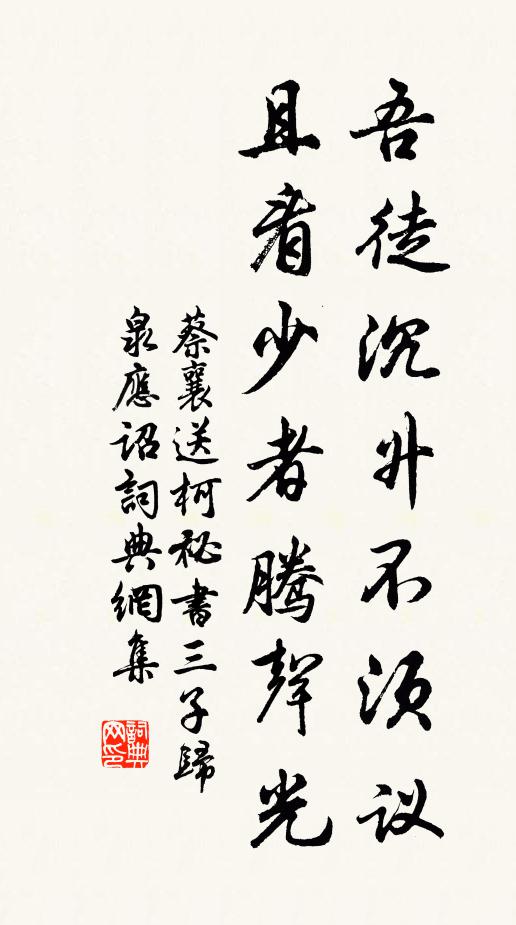 吾徒沉升不须议
且看少者腾聲光
蔡襄送柯秘書三子歸
泉應詔詞典網集
詞典
网印